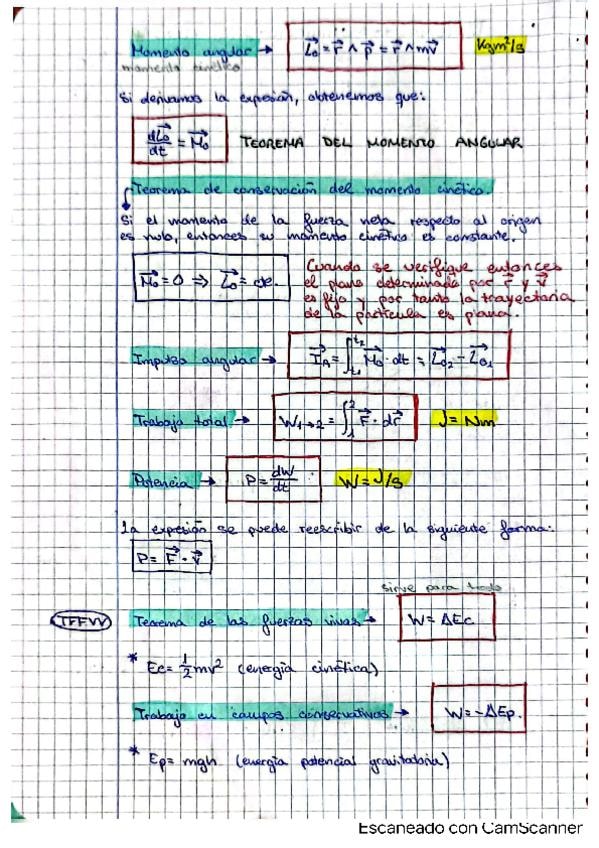 Momento angular → L₀ = r ∧ p = r ∧ mv Kgm²/s
momento cinético
Si derivamos la expresión, obtenemos que:
dL₀/dt = M₀ TEOREMA DEL MOMENTO ANGULAR
Teorema de conservación del momento cinético.
Si el momento de la fuerza neta respecto al origen
es nulo, entonces su momento cinético es constante.
M₀ = 0 ⇒ L₀ = cte.
Cuando se verifique entonces
el plano determinado por r y v
es fijo y por tanto la trayectoria
de la partícula es plana.
Impulso angular → I_A = ∫_{t₁}^{t₂} M₀ · dt = L₀₂ - L₀₁
Trabajo total → W₁→₂ = ∫₁² F · dr J = Nm
Potencia → P = dW/dt W = J/s
La expresión se puede reescribir de la siguiente forma:
P = F · v
sirve para todo
TFFVV Teorema de las fuerzas vivas → W = ΔEc
* Ec = 1/2 mv² (energía cinética)
Trabajo en campos conservativos → W = -ΔEp.
* Ep = mgh (energía potencial gravitatoria)
Escaneado con CamScanner